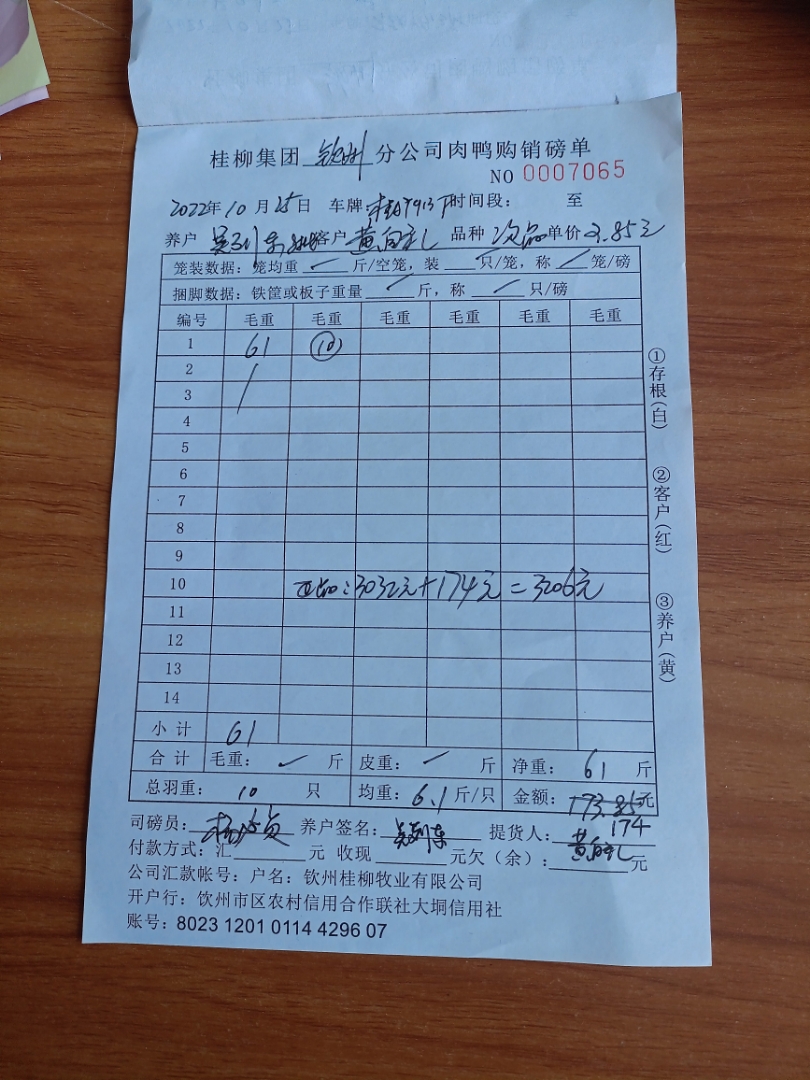 桂柳集团 钦州 分公司肉鸭购销磅单
NO 0007065
2022年10月25日 车牌 时间段: 至
养户 客户 品种 次品 单价 2.85元
笼装数据:笼均重 ✓ 斤/空笼,装 只/笼,称 ✓ 笼/磅
捆脚数据:铁筐或板子重量 ✓ 斤,称 ✓ 只/磅
编号 毛重 毛重 毛重 毛重 毛重 毛重
1 61 ⑩
2
3
4
5
6
7
8
9
10 正品:3032元+174元=3206元
11
12
13
14
小计 61
合计 毛重: ✓ 斤 皮重: ✓ 斤 净重: 61 斤
总羽重: 10 只 均重: 6.1 斤/只 金额: 173.85元
174
司磅员: 养户签名: 提货人:
付款方式:汇 元 收现 元欠(余): 元
公司汇款帐号:户名:钦州桂柳牧业有限公司
开户行:钦州市区农村信用合作联社大垌信用社
账号:8023 1201 0114 4296 07
①存根(白)
②客户(红)
③养户(黄)